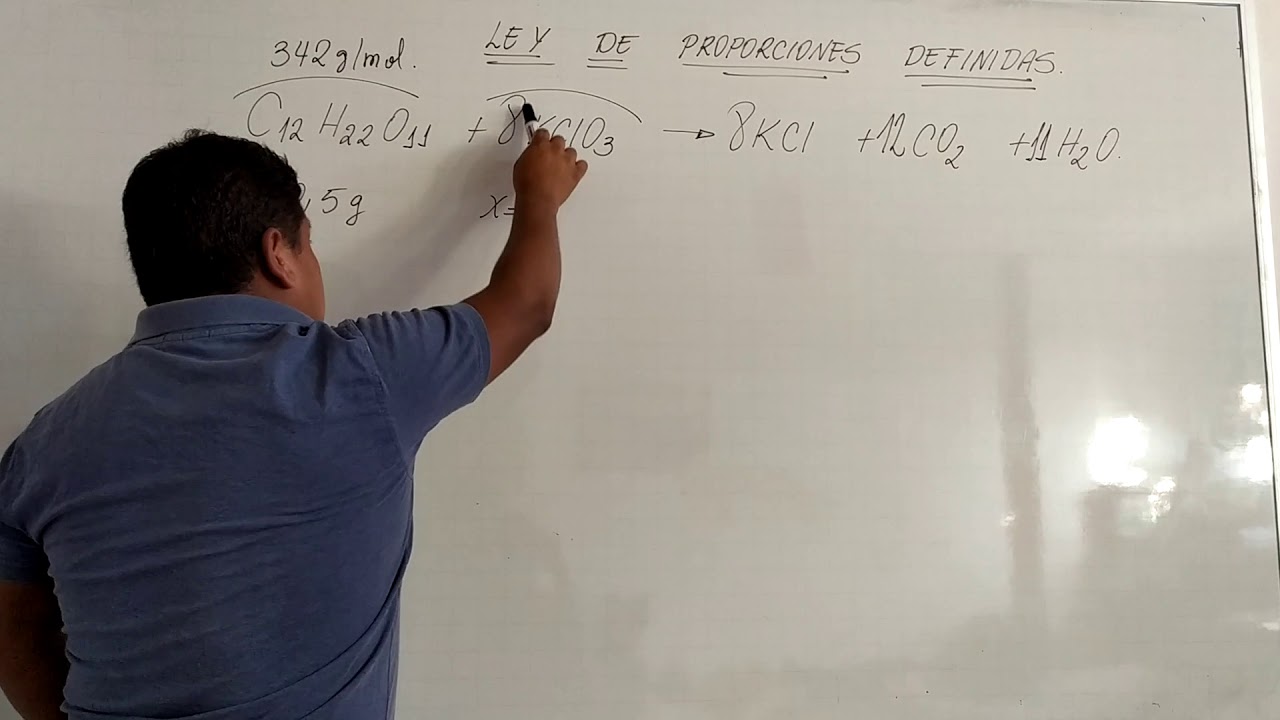 342g/mol. LEY DE PROPORCIONES DEFINIDAS.
C₁₂H₂₂O₁₁ + 8KClO₃ → 8KCl +12CO₂ +11H₂O.
,5g x=